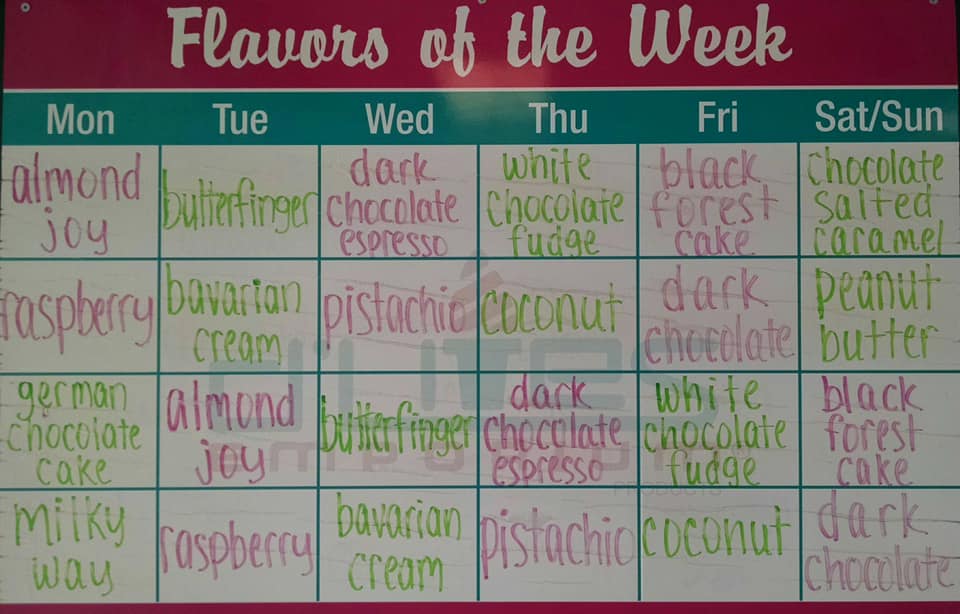 Flavors of the Week
Mon Tue Wed Thu Fri Sat/Sun
almond
joy
butterfinger
dark
chocolate
espresso
white
chocolate
fudge
black
forest
cake
chocolate
salted
caramel
raspberry
bavarian
cream
pistachio
coconut
dark
chocolate
peanut
butter
german
chocolate
cake
almond
joy
butterfinger
dark
chocolate
espresso
white
chocolate
fudge
black
forest
cake
milky
way
raspberry
bavarian
cream
pistachio
coconut
dark
chocolate
PRODUCTS